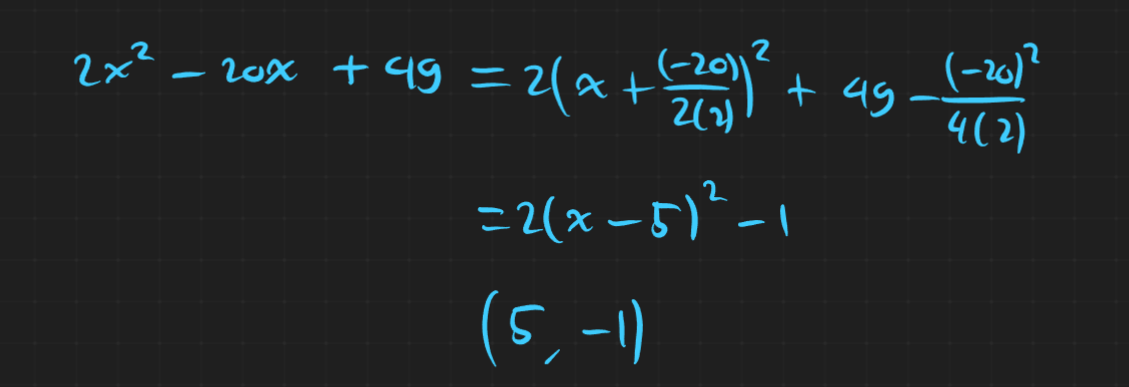 2x² − 20x + 49 = 2(x + (-20)/2(2))² + 49 − (-20)²/4(2)
= 2(x − 5)² − 1
(5, −1)